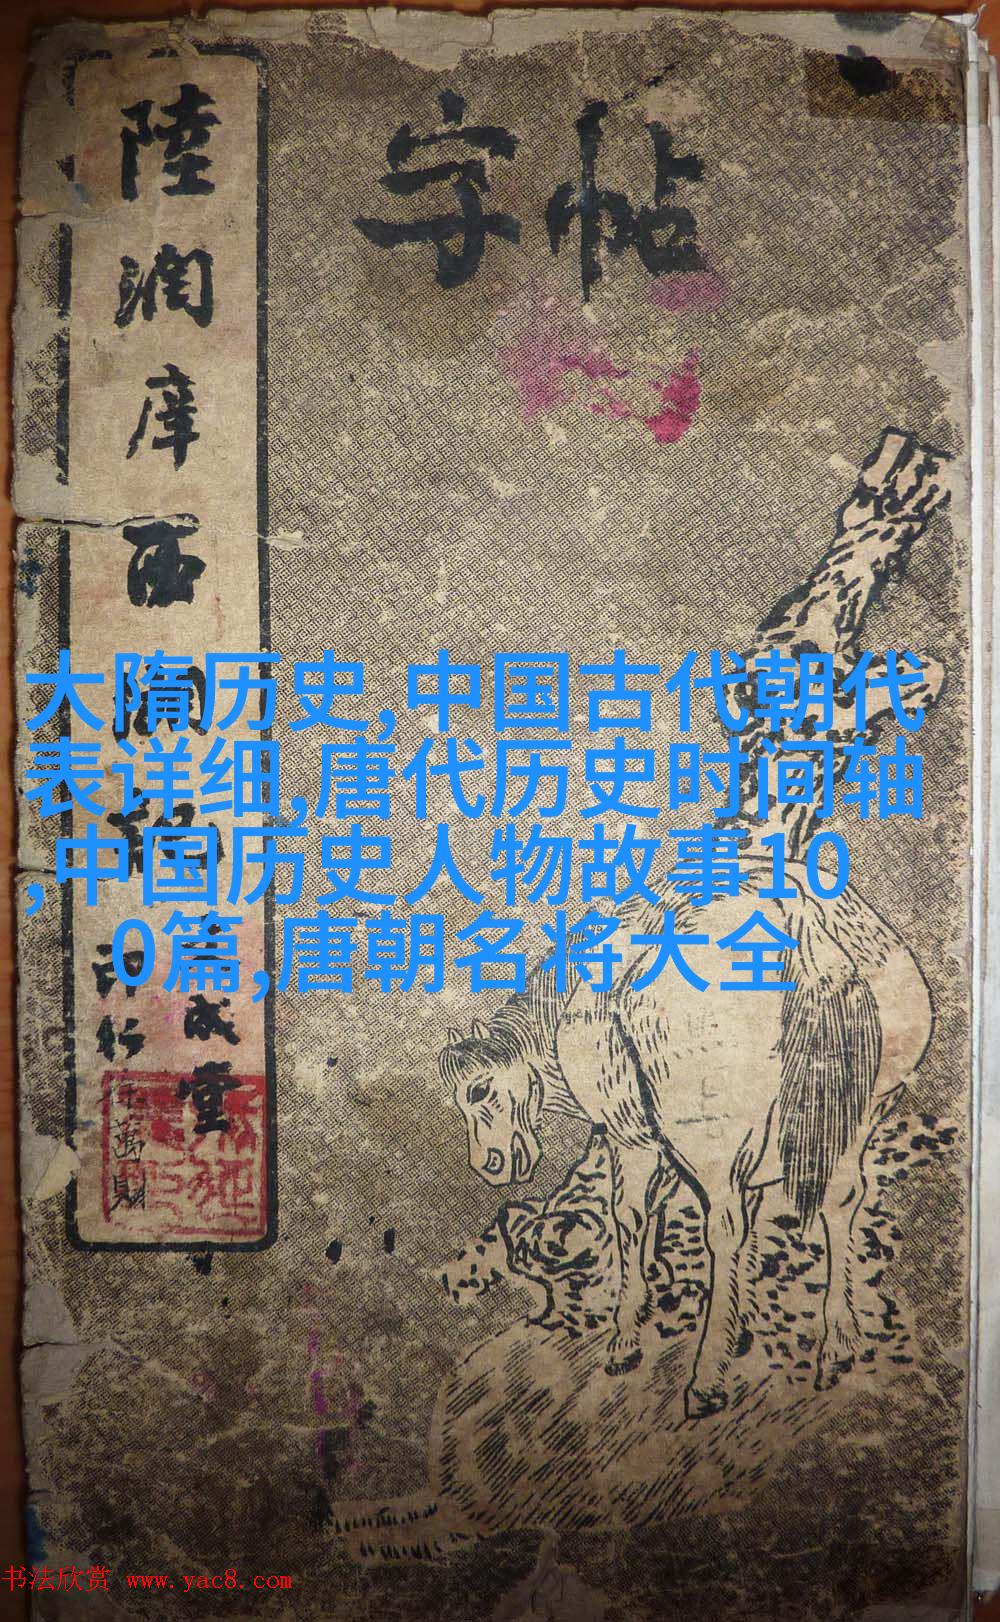 字帖
陸潤庠西湖記
成堂
印行
徐萬財
大隋历史,中国古代朝代
表详细,唐代历史时间轴
,中国历史人物故事10
0篇,唐朝名将大全
书法欣赏 www.yac8.com